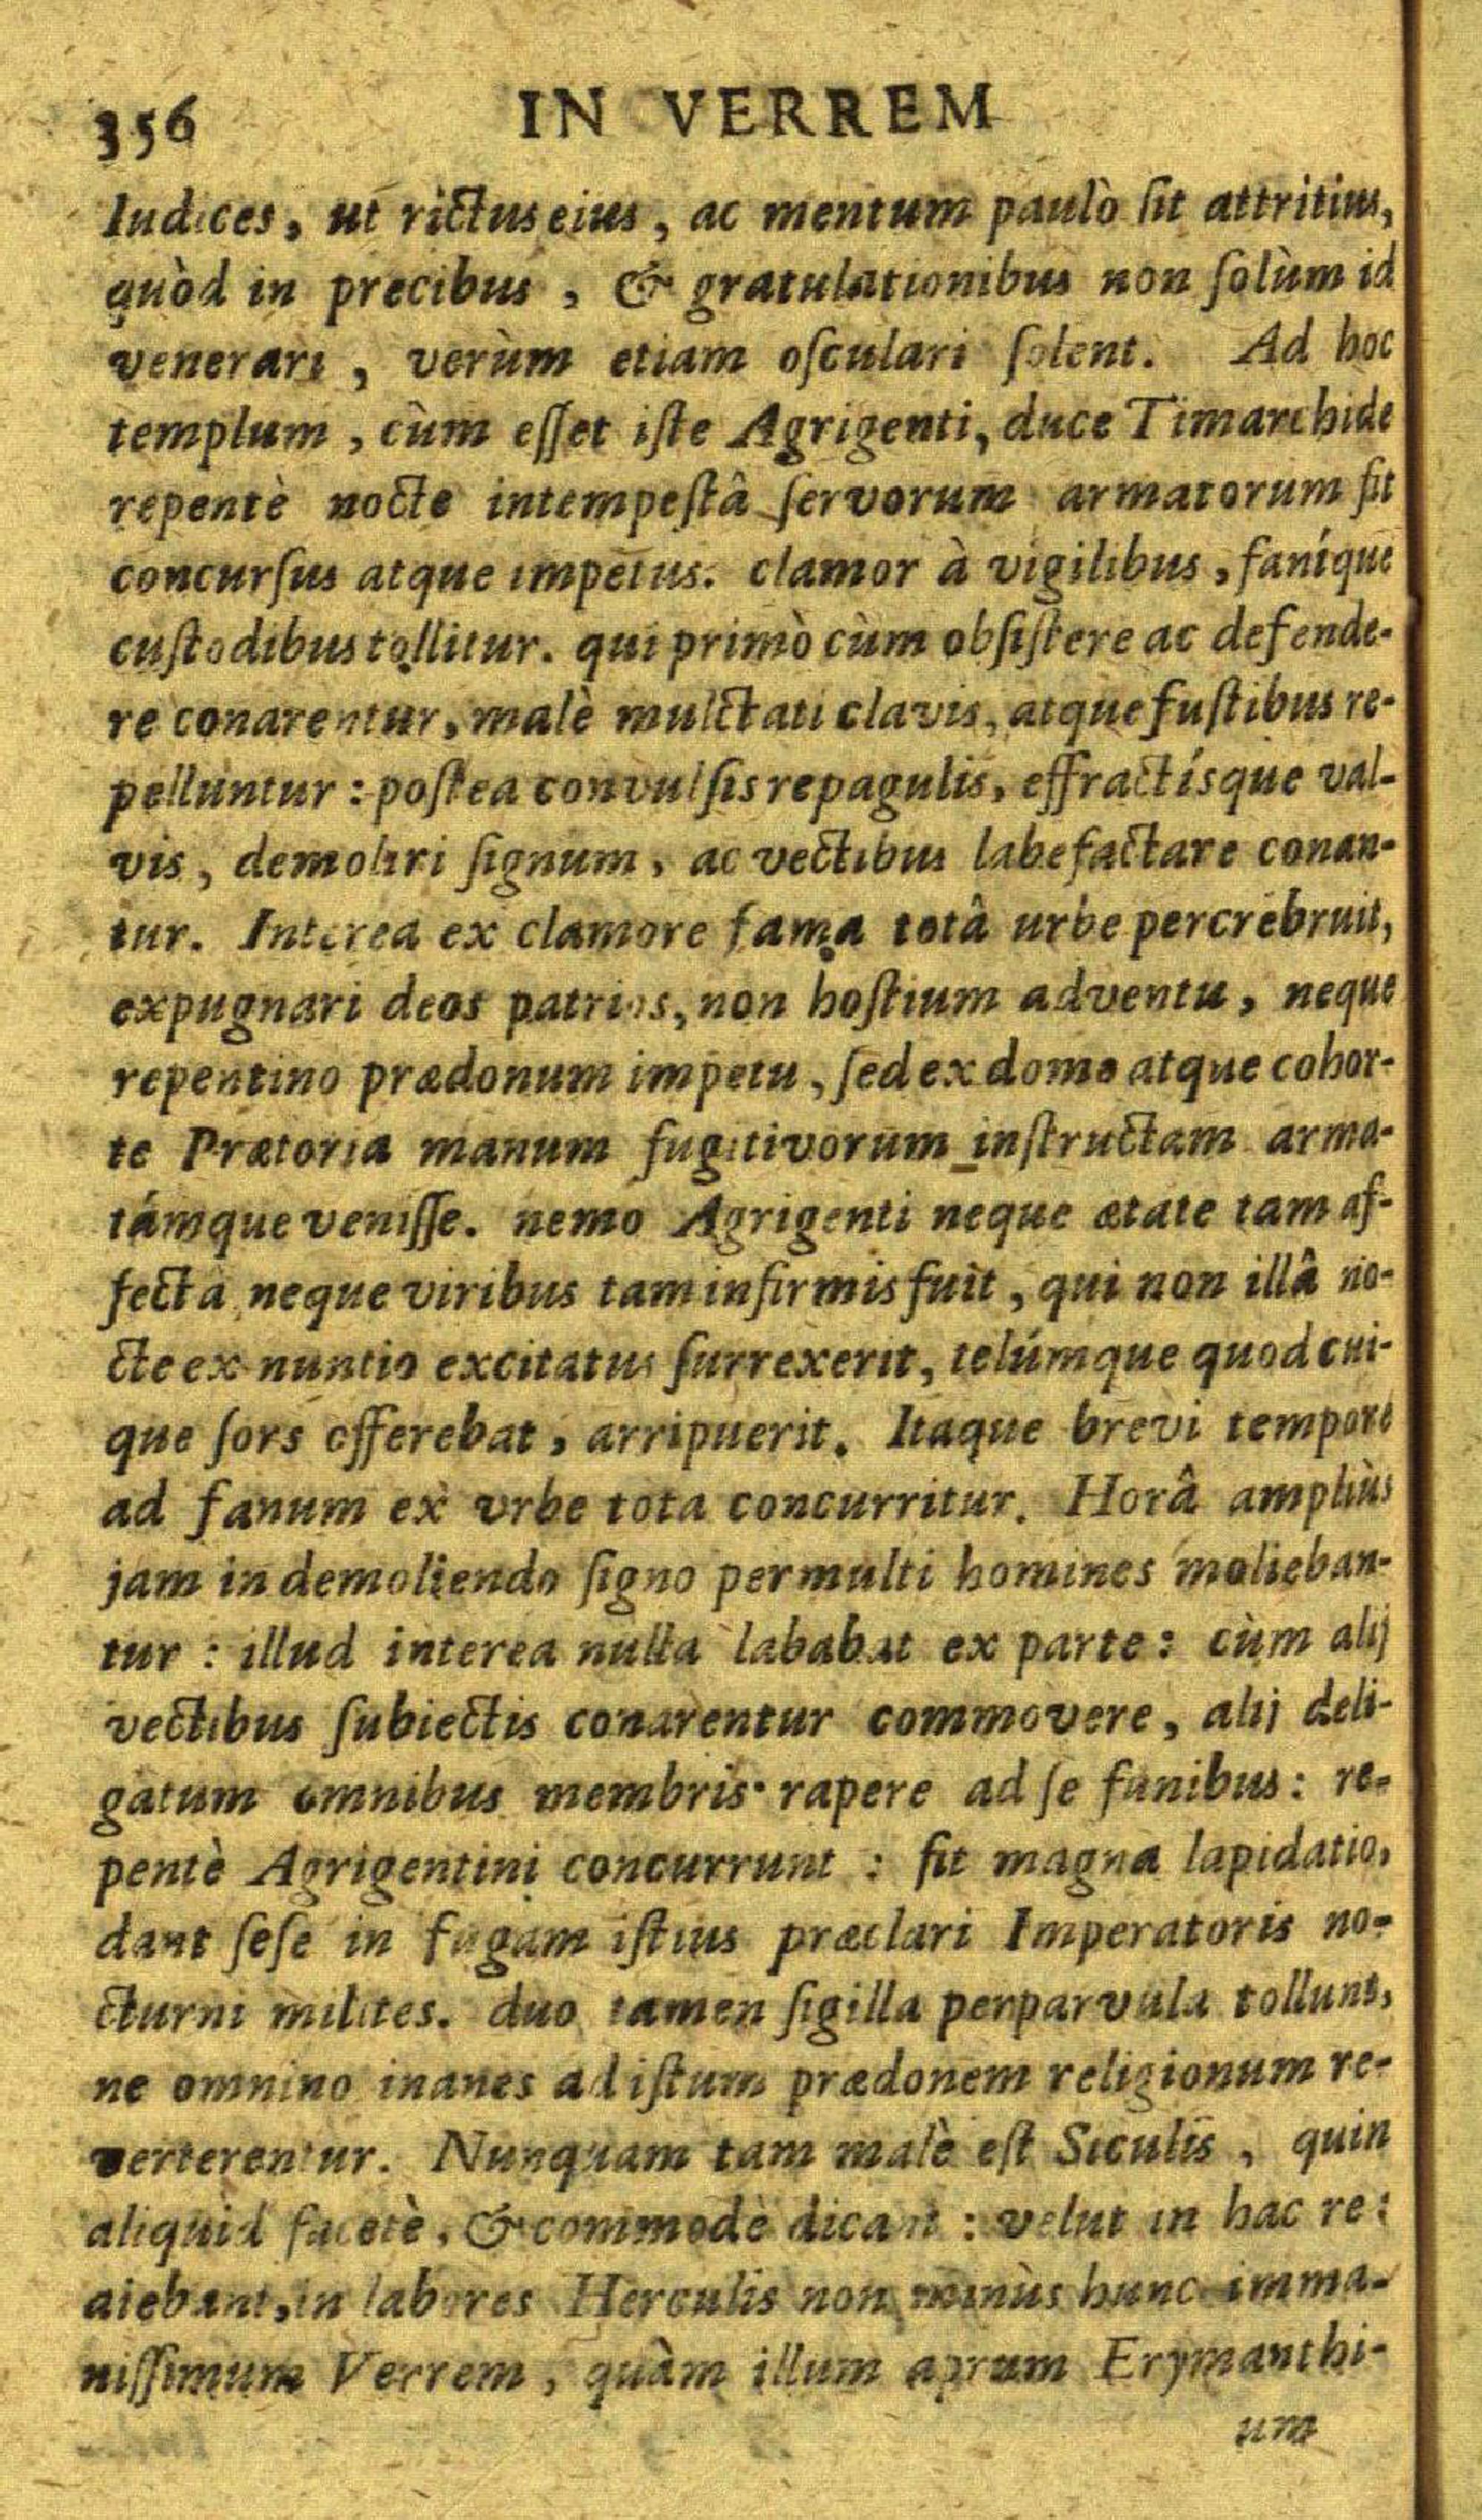 356 IN VERREM
Iudices, ut rictus eius, ac mentum paulò ſit attritius,
quòd in precibus, & gratulationibus non ſolùm id
venerari, verùm etiam oſculari ſolent. Ad hoc
templum, cùm eſſet iſte Agrigenti, duce Timarchide
repentè nocte intempeſtâ ſervorum armatorum fit
concurſus atque impetus. clamor à vigilibus, faníque
cuſtodibus tollitur. qui primò cùm obſiſtere ac defende-
re conarentur, malè mulctati clavis, atque fuſtibus re-
pelluntur: poſtea convulſis repagulis, effractísque val-
vis, demoliri ſignum, ac vectibus labefactare conan-
tur. Interea ex clamore fama totâ urbe percrebruit,
expugnari deos patrios, non hoſtium adventu, neque
repentino prædonum impetu, ſed ex domo atque cohor-
te Prætoria manum fugitivorum inſtructam arma-
támque veniſſe. nemo Agrigenti neque ætate tam af-
fecta neque viribus tam infirmis fuit, qui non illâ no-
cte ex nuntio excitatus ſurrexerit, telúmque quod cui-
que ſors offerebat, arripuerit. Itaque brevi tempore
ad fanum ex vrbe tota concurritur. Horâ ampliùs
jam in demoliendo ſigno permulti homines molieban-
tur: illud interea nulla lababat ex parte: cùm alij
vectibus ſubiectis conarentur commovere, alij deli-
gatum omnibus membris rapere ad ſe funibus: re-
pentè Agrigentini concurrunt: fit magna lapidatio,
dant ſeſe in fugam iſtius præclari Imperatoris no-
cturni milites. duo tamen ſigilla perparvula tollunt,
ne omnino inanes ad iſtum prædonem religionum re-
verterentur. Nunquam tam malè eſt Siculis, quin
aliquid facetè, & commodè dicant: velut in hac re:
aiebant, in labores Herculis non minùs hunc imma-
niſſimum Verrem, quàm illum aprum Erymanthi-
um